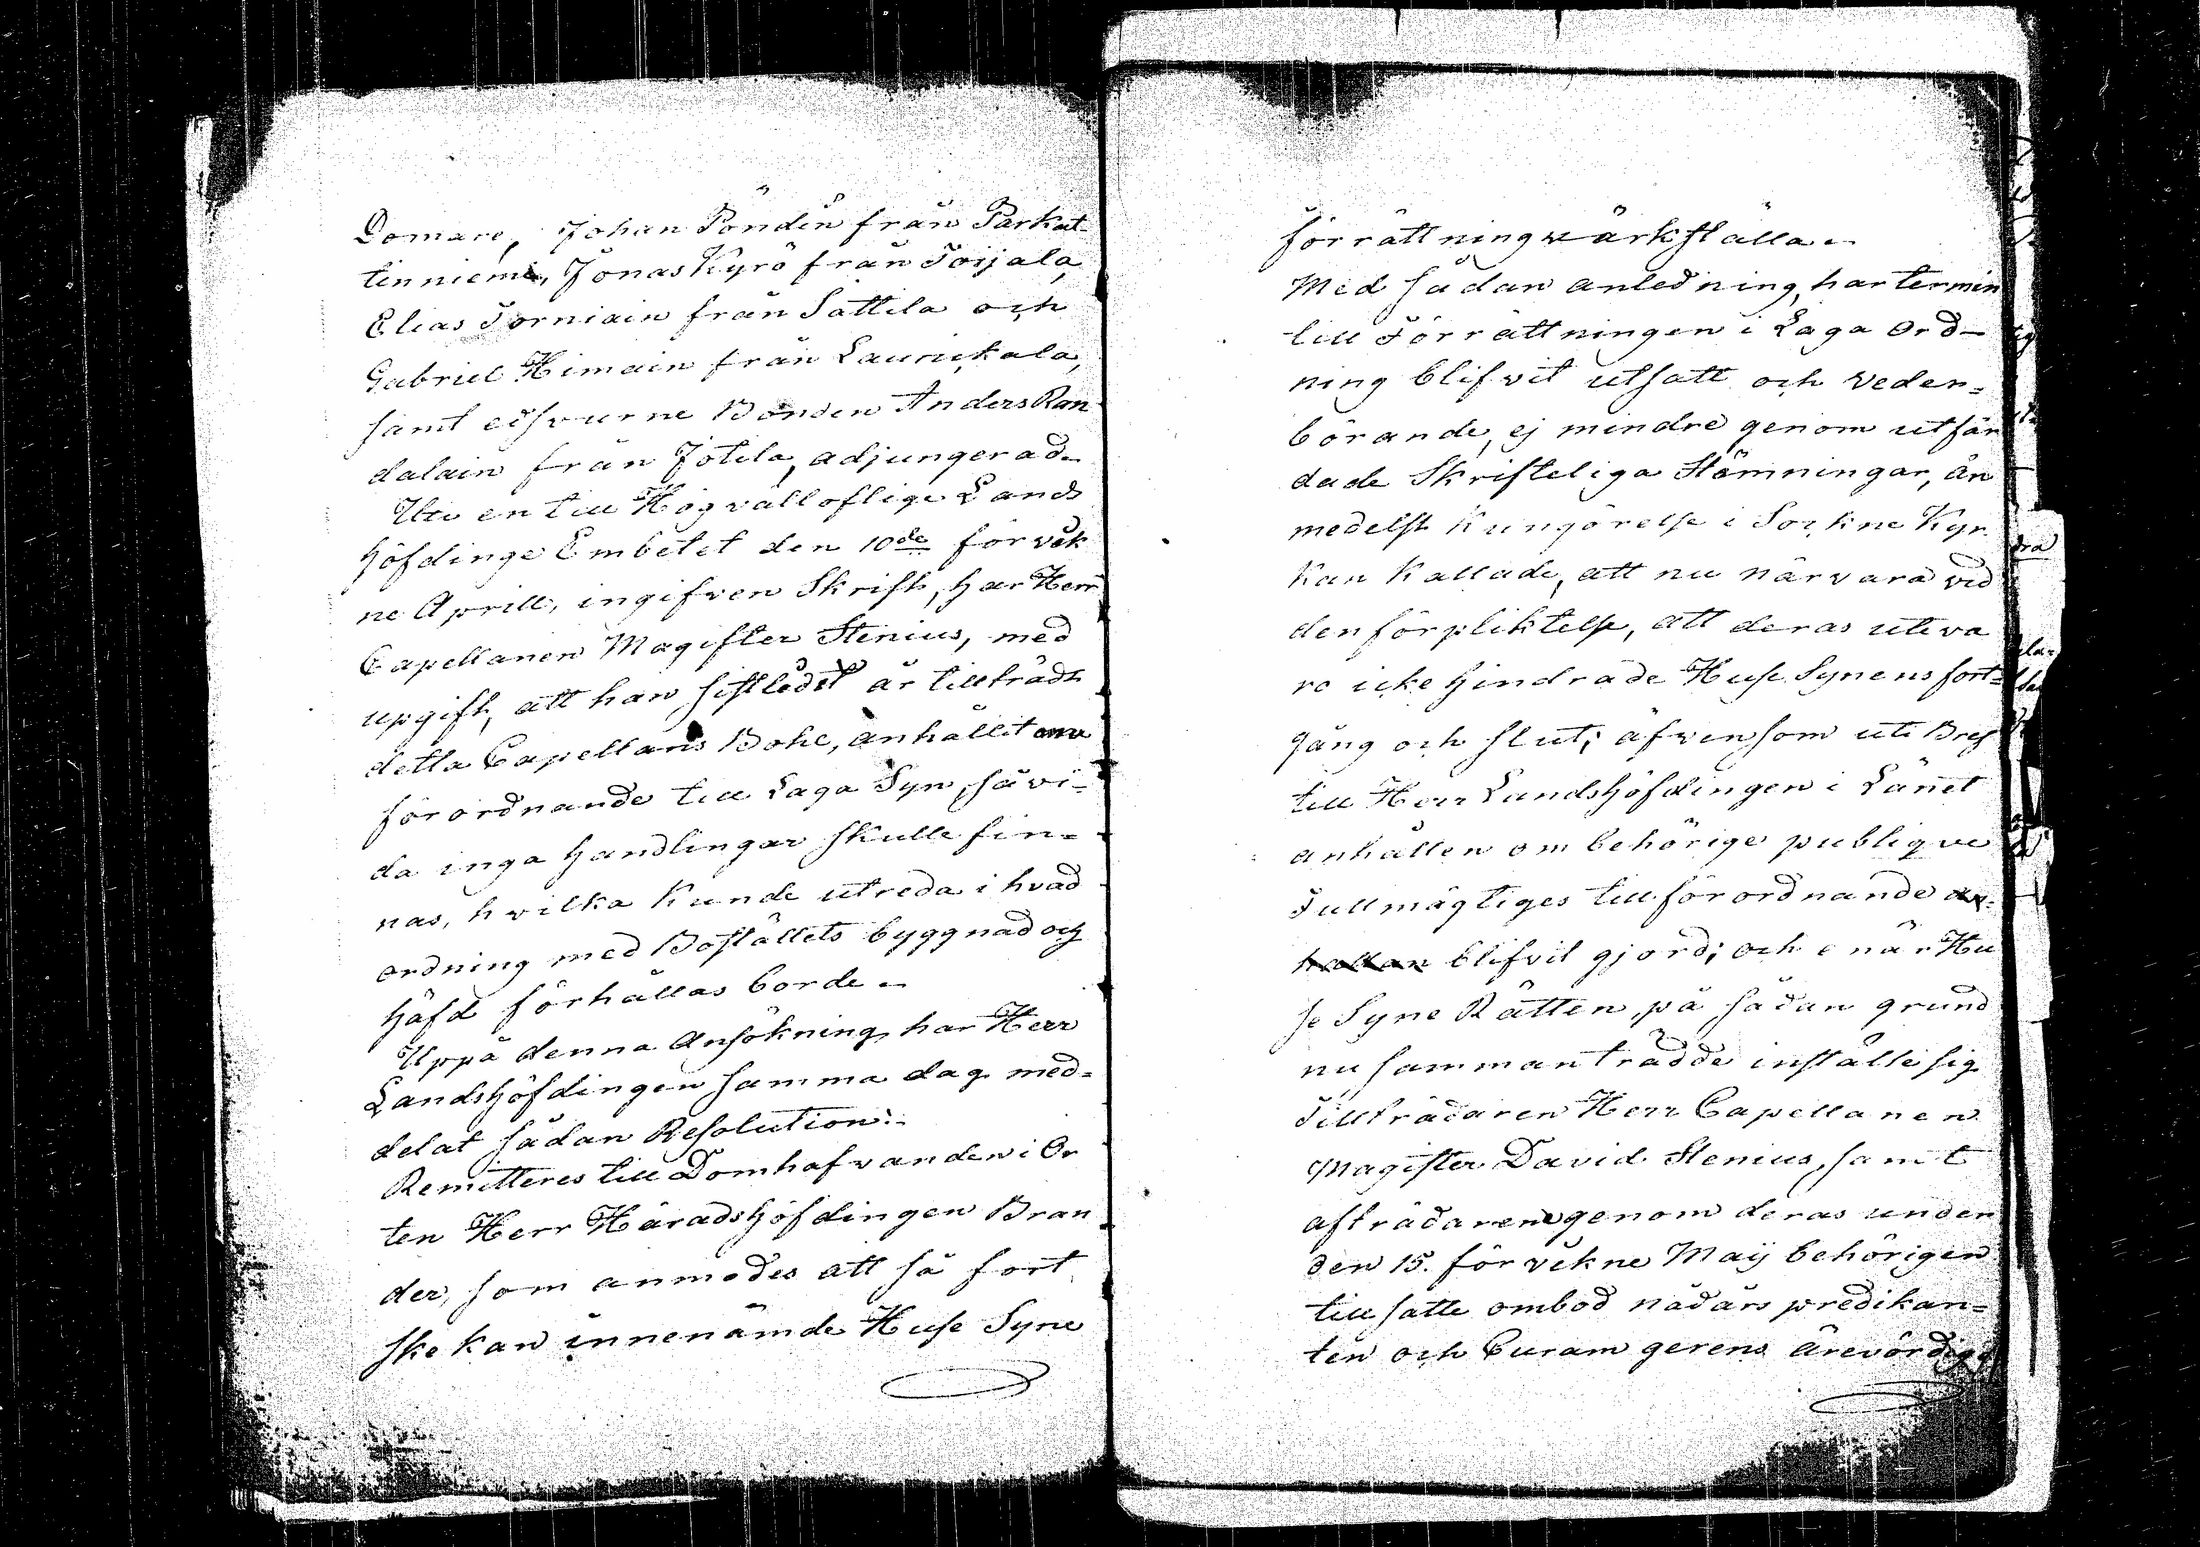 Domare, Johan Pöndin från Parkat
tinniemi, Jonas Kyrö från Toijala,
Elias Torniain från Sattila och
Gabriel Himain från Laurickala,
samt edsvurne Bonden Anders Ran
dalain från Jotela, adjungerad.
Uti en till Högvälloflige Lands
höfdinge Embetet den 10de förvek
ne Aprill, ingifven Skrift, har Herr
Capellanen Magister Stenius, med
upgift, att han sistledet år tillträdt
detta Capellans Bohl, anhållit om
förordnande till Laga Syn, såvi-
da inga handlingar skulle fin=
nas, hvilka kunde utreda i hvad
ordning med Boställets byggnad och
häfd förhållas borde.
Uppå denna Ansökning, har Herr
Landshöfdingen samma dag med=
delat sådan Resolution:
Remitteres till Domhafvanden i Or
ten Herr Häradshöfdingen Bran
der, som anmodes att så fort
ske kan innenämde Huse Syne
förrättning värkställa.
Med sådan anledning, har termin
till Förrättningen i Laga Ord-
ning blifvit utsatt och veder=
börande, ej mindre genom utfär
dade Skrifteliga Stämningar, än
medelst Kungörelse i Sockne Kyr
kan kallade, att nu närvara vid
den förpliktelse, att deras uteva
ro icke hindrade Huse Synens fort=
gång och slut; äfvensom uti Bref
till Herr Landshöfdingen i Länet
anhållen om behörige publique
Fullmägtiges tillförordnande
blifvit gjord; och enär Hu
se Syne Rätten, på sådan grund
nu sammanträdde instälte sig
Tillträdaren Herr Capellanen
Magister David Stenius, samt
afträdarene genom deras under
den 15. förvekne Maij behörigen
tillsatte ombod nådårs predikan=
ten och Curam gerens Ärevördige